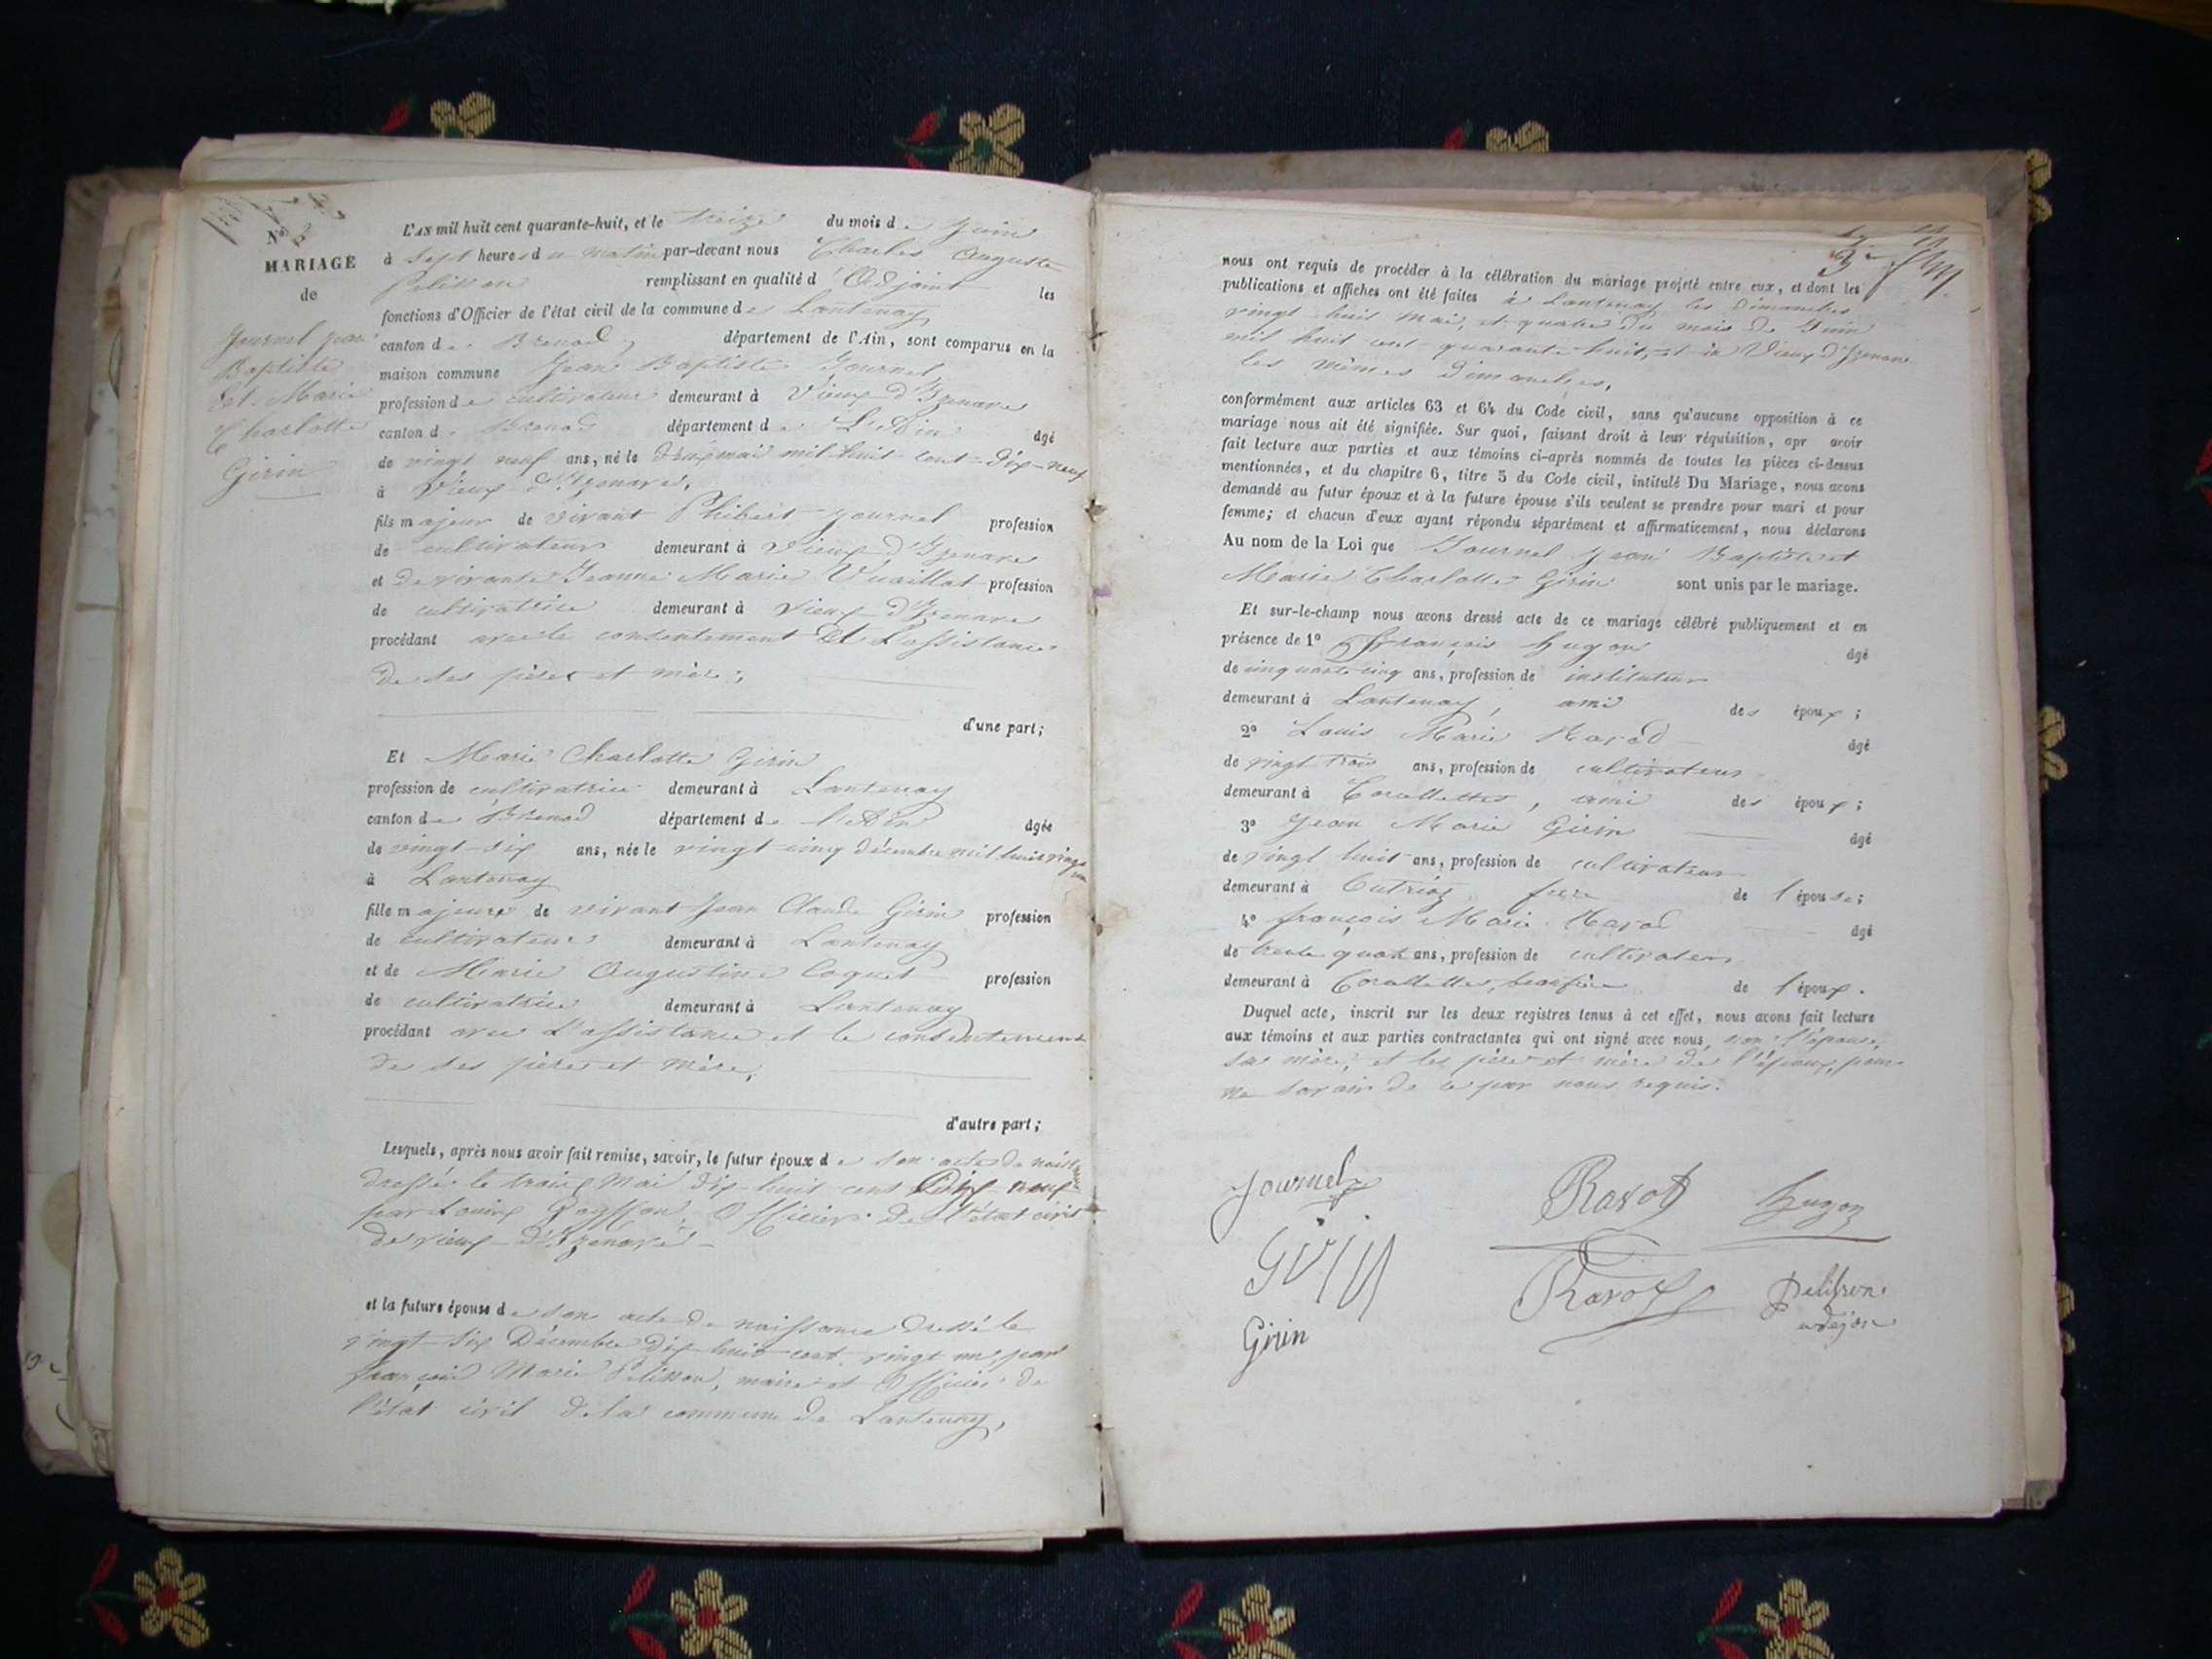 N°
MARIAGE
de
Journel Jean
Baptiste
et Marie
Charlotte
Girin
L'AN mil huit cent quarante-huit, et le treize du mois de Juin
à Sept heures du matin par-devant nous Charles Auguste
Pelisson remplissant en qualité d'Adjoint les
fonctions d'Officier de l'état civil de la commune de Lantenay
canton de Brenod, département de l'Ain, sont comparus en la
maison commune Jean Baptiste Journel
profession de cultivateur demeurant à Vieux d'Izenave
canton de Brenod département de L'Ain âgé
de vingt neuf ans, né le mai mil huit cent dix-neuf
à Vieux d'Izenave,
fils majeur de vivant Phibert Journel profession
de cultivateur demeurant à Vieux d'Izenave
et de vivante Jeanne Marie Vuaillat profession
de cultivatrice demeurant à Vieux d'Izenave
procédant avec le consentement et L'assistance
de ses père et mère;
d'une part;
Et Marie Charlotte Girin
profession de cultivatrice demeurant à Lantenay
canton de Brenod département de l'Ain âgée
de vingt-six ans, née le vingt-cinq décembre mil huit vingt
un
à Lantenay
fille majeure de vivant Jean Claude Girin profession
de cultivateur demeurant à Lantenay
et de Marie Augustine Coquet profession
de cultivatrice demeurant à Lantenay
procédant avec L'assistance et le consentement
de ses père et mère,
d'autre part;
Lesquels, après nous avoir fait remise, savoir, le futur époux de son acte de
dressé le Mai dix-huit cent dix-neuf
par Officier de l'état civil
de vieux-d'Izenave
et la future épouse de son acte de naissance dressé le
vingt-six Décembre dix-huit cent vingt un, par
françois Marie Pelisson, maire et Officier de
l'état civil de la commune de Lantenay,
nous ont requis de procéder à la célébration du mariage projeté entre eux, et dont les
publications et affiches ont été faites à Lantenay les Dimanches
vingt-huit Mai, et quatre du mois de Juin
mil huit cent quarante huit, et à Vieux d'Izenave
les mêmes Dimanches,
conformément aux articles 63 et 64 du Code civil, sans qu'aucune opposition à ce
mariage nous ait été signifiée. Sur quoi, faisant droit à leur réquisition, apr avoir
fait lecture aux parties et aux témoins ci-après nommés de toutes les pièces ci-dessus
mentionnées, et du chapitre 6, titre 5 du Code civil, intitulé Du Mariage, nous avons
demandé au futur époux et à la future épouse s'ils veulent se prendre pour mari et pour
femme; et chacun d'eux ayant répondu séparément et affirmativement, nous déclarons
Au nom de la Loi que Journel Jean Baptiste et
Marie Charlotte Girin sont unis par le mariage.
Et sur-le-champ nous avons dressé acte de ce mariage célébré publiquement et en
présence de 1° François hugon âgé
de cinquante-cinq ans, profession de instituteur
demeurant à Lantenay, ami des époux;
2° Louis Marie Ravod âgé
de vingt trois ans, profession de cultivateur
demeurant à , ami des époux;
3° Jean Marie Girin âgé
de vingt huit ans, profession de cultivateur
demeurant à Outriaz frère de l'épouse;
4° françois Marie Ravod âgé
de trente quatre ans, profession de cultivateur
demeurant à , beaufrère de l'époux.
Duquel acte, inscrit sur les deux registres tenus à cet effet, nous avons fait lecture
aux témoins et aux parties contractantes qui ont signé avec nous, non l'épouse,
sa mère, et les père et mère de l'époux, pour
ne savoir de ce par nous requis.
Journel Ravot hugon
Girin Ravot Pelisson
Girin adejoin